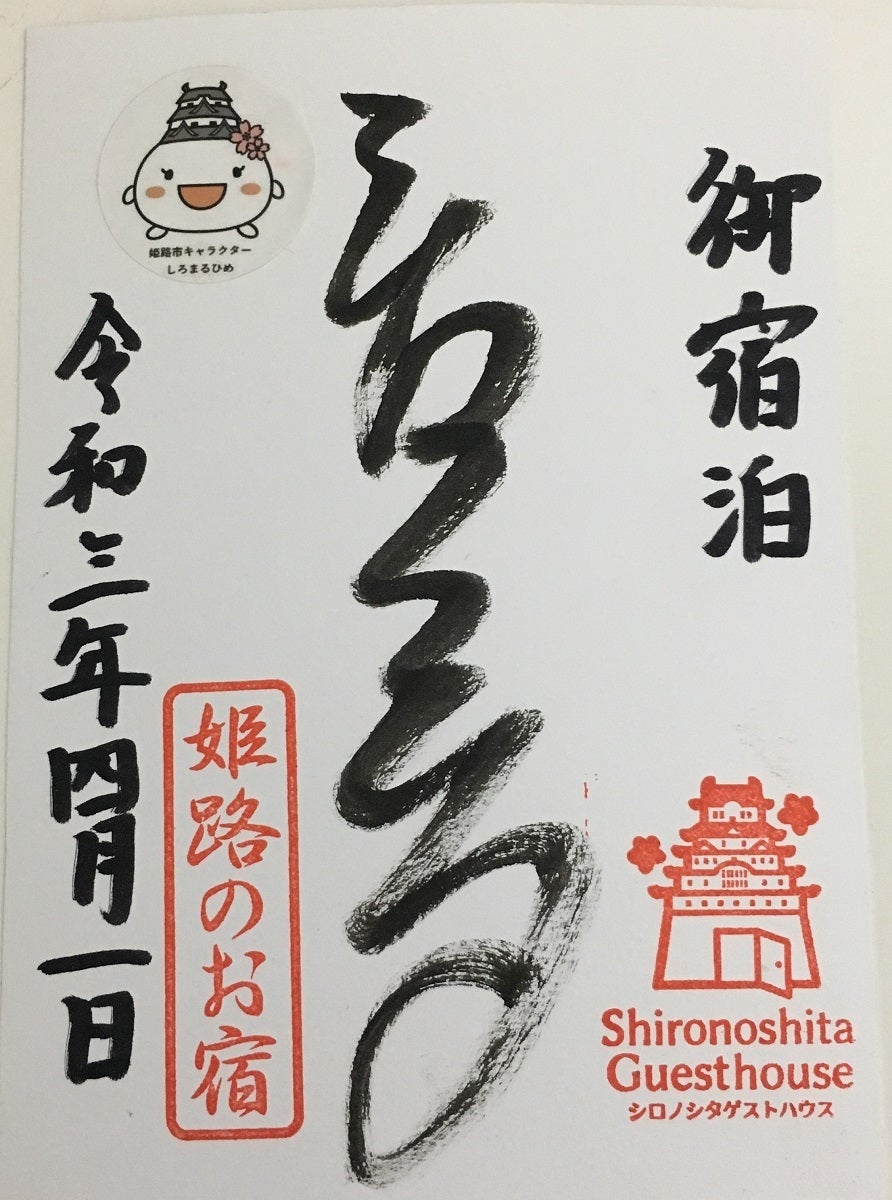 御宿泊
シロノシタ
姫路市キャラクター
しろまるひめ
令和三年四月一日
姫路のお宿
Shironoshita
Guesthouse
シロノシタゲストハウス